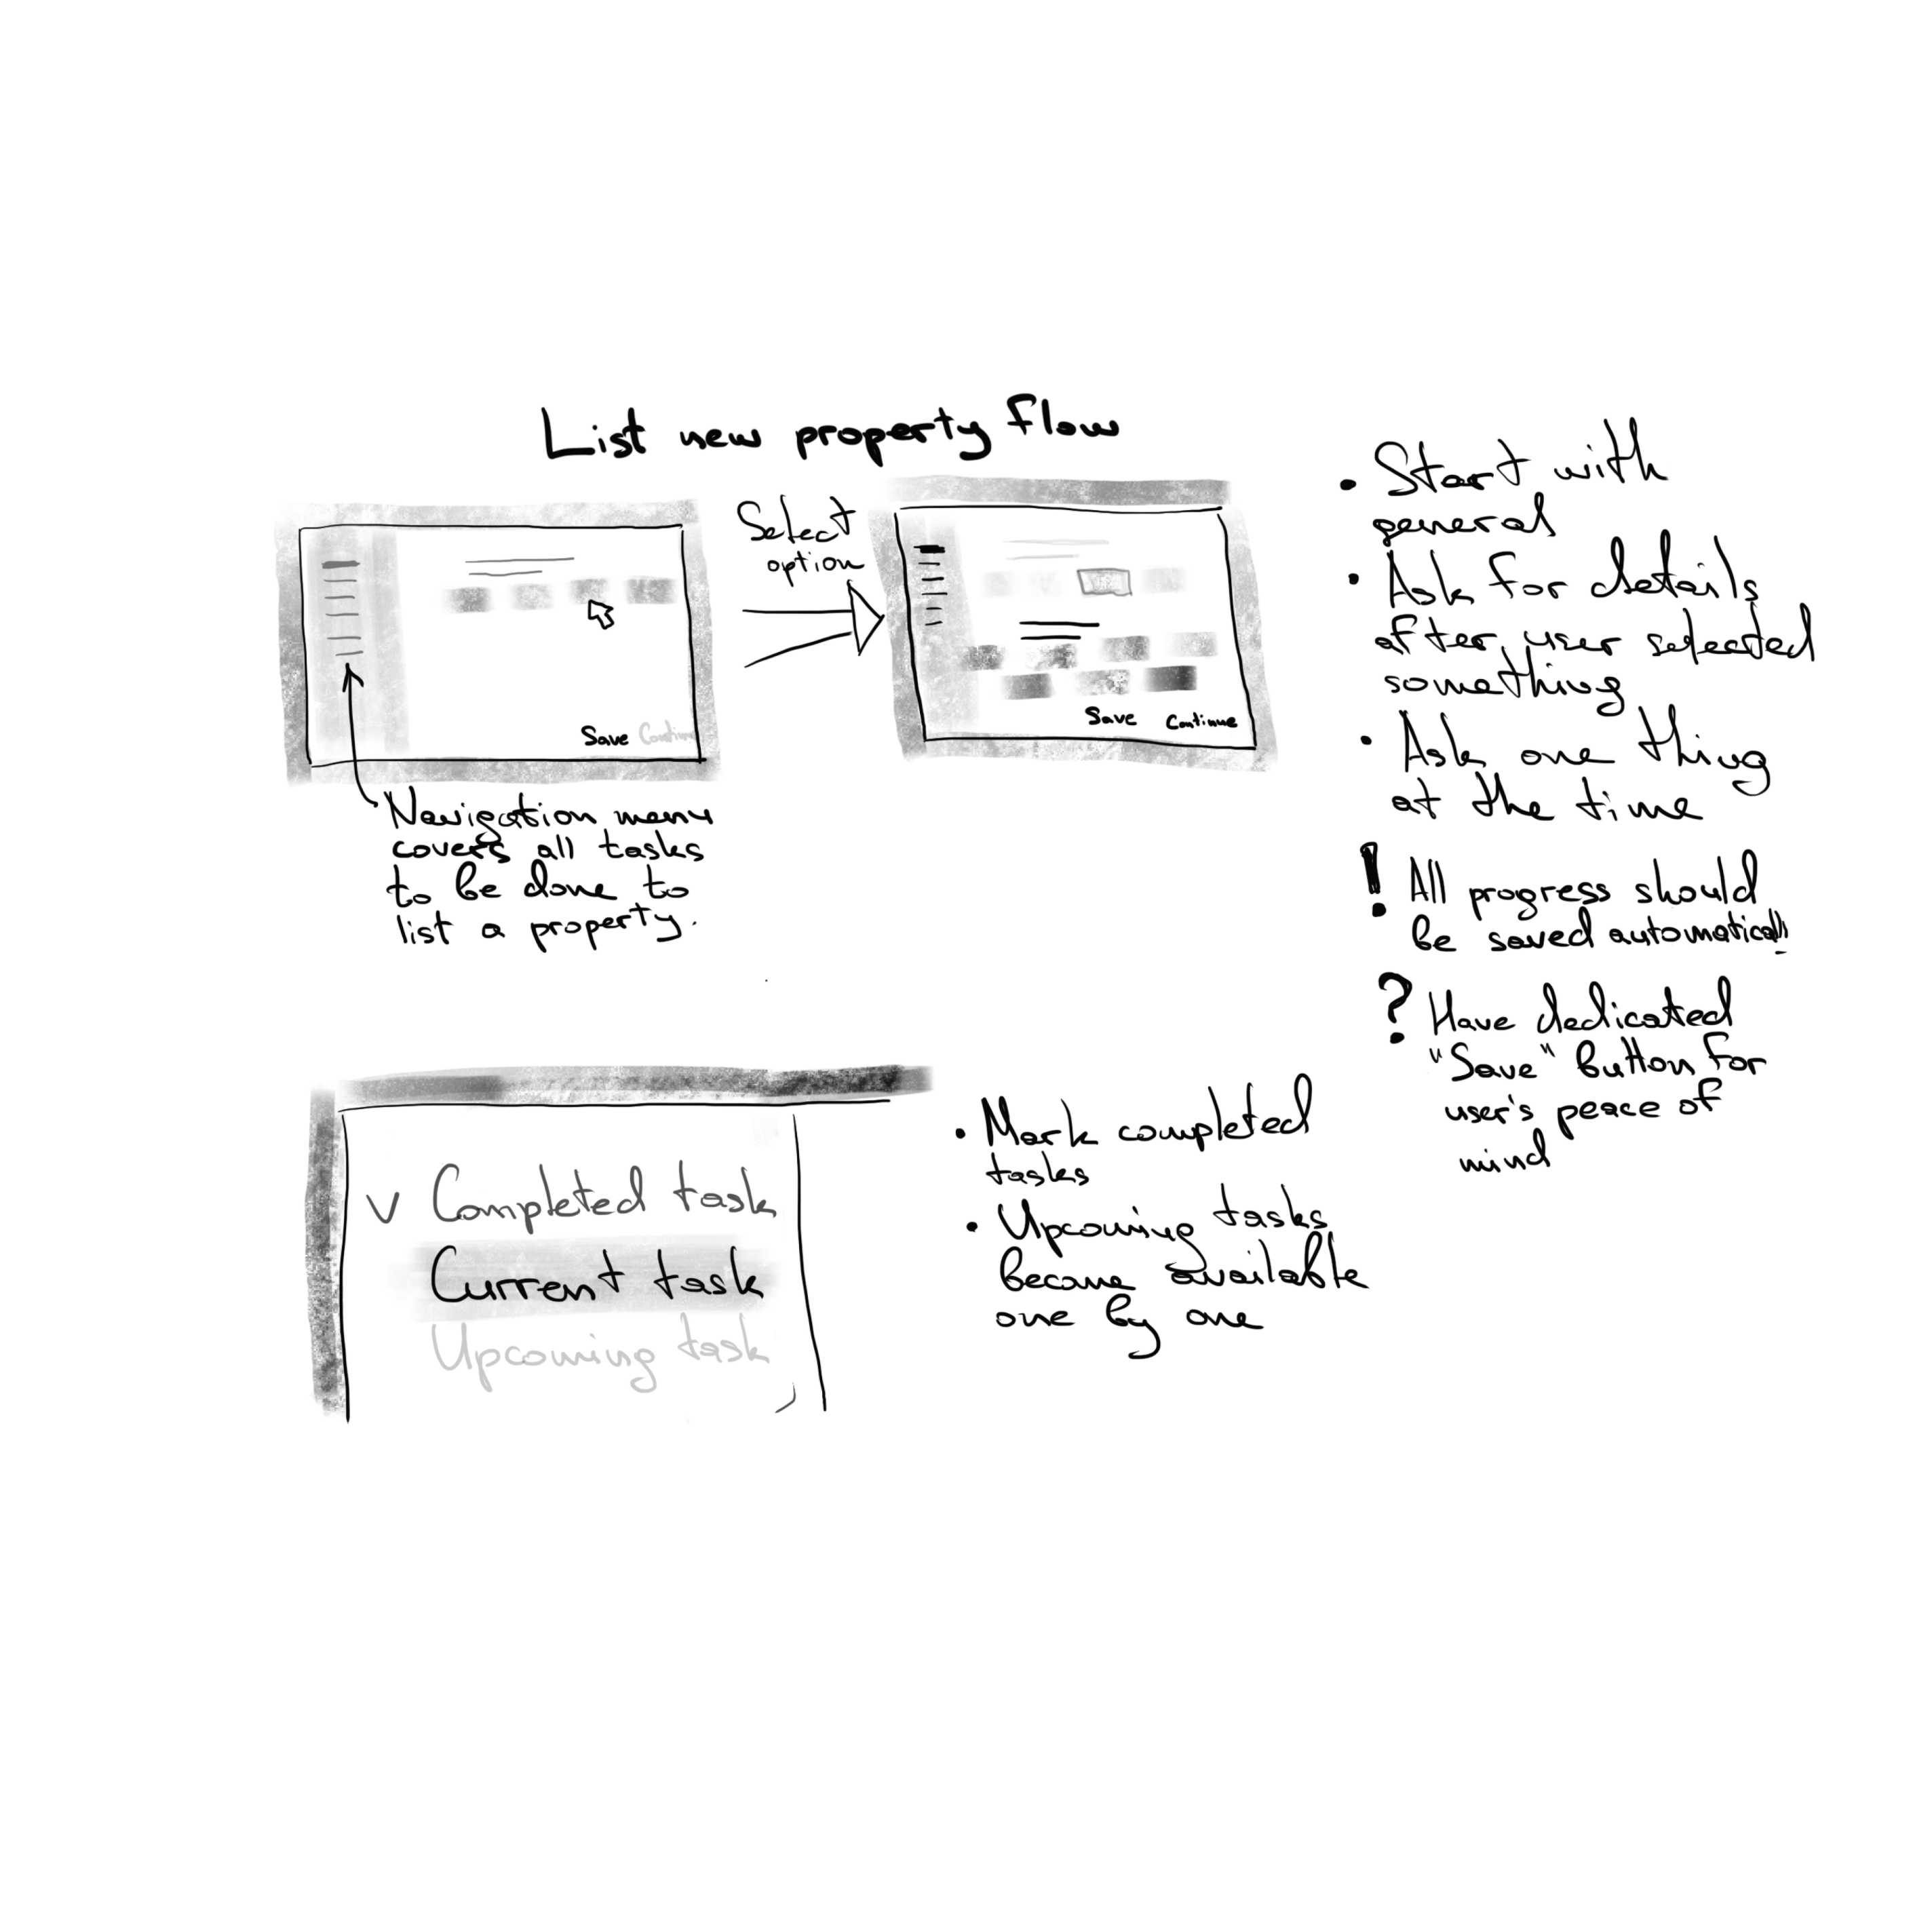 List new property flow
Select
option
Save Continue
Save Continue
Navigation menu
covers all tasks
to be done to
list a property.
• Start with
general
• Ask for details
after user selected
something
• Ask one thing
at the time
! All progress should
be saved automatically
? Have dedicated
"Save" button for
user's peace of
mind
v Completed task
Current task
Upcoming task
• Mark completed
tasks
• Upcoming tasks
became available
one by one